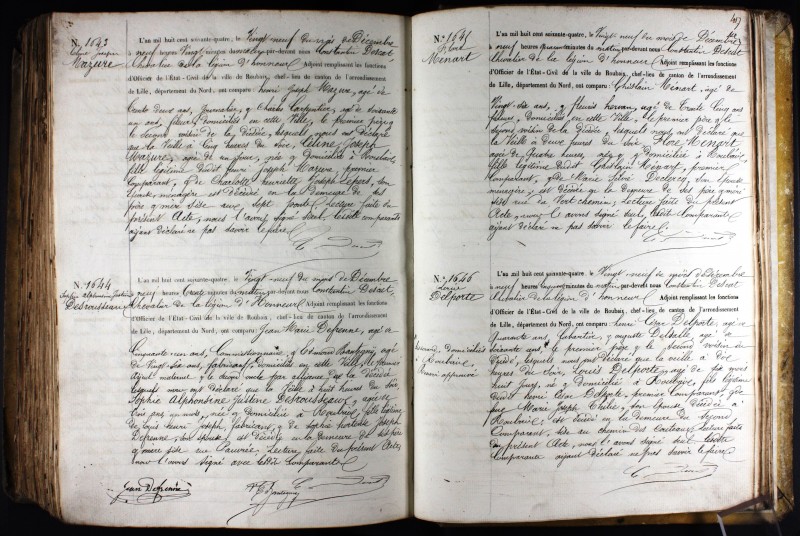 N.° 1643
Mazure
L'an mil huit cent soixante-quatre, le Vingt neuf du mois de Décembre
à neuf heures Vingt minutes du matin, par-devant nous Constantin Descat
Chevalier de la légion d'honneur Adjoint remplissant les fonctions
d'Officier de l'État-Civil de la ville de Roubaix, chef-lieu de canton de l'arrondissement
de Lille, département du Nord, ont comparu : henri Joseph Mazure, âgé de
trente deux ans, Journalier, & Charles Carpentier, âgé de soixante
un ans, fileur, domiciliés en cette Ville, le premier père &
le second voisin de la décédée, lesquels nous ont déclaré
que la Veille à Cinq heures du soir, Céline Joseph
Mazure, âgée de un jour, née & domiciliée à Roubaix,
fille légitime dudit henri Joseph Mazure, premier
Comparant, & de Charlotte henriette Joseph Lepers, son
épouse, ménagère, est décédée en la demeure de ses
père & mère sise aux sept ponts; Lecture faite du
présent Acte, nous l'avons signé seul, lesdits comparants
ayant déclaré ne pas savoir le faire.
N.° 1644
Sophie alphonsine Justine
Desrousseaux
L'an mil huit cent soixante-quatre, le Vingt-neuf du mois de Décembre
à neuf heures trente minutes du matin, par-devant nous Constantin Descat,
Chevalier de la légion d'Honneur Adjoint remplissant les fonctions
d'Officier de l'État-Civil de la ville de Roubaix, chef-lieu de canton de l'arrondissement
de Lille, département du Nord, ont comparu : Jean Marie Defrenne, âgé de
Cinquante un ans, Commissionnaire, & Edmond âgé
de Vingt-six ans, fabricant, domiciliés en cette Ville, le premier
ayeul maternel & le second oncle par alliance de la décédée
lesquels nous ont déclaré que la Veille à huit heures du soir
Sophie Alphonsine Justine Desrousseaux, âgée de
trois ans un mois, née & domiciliée à Roubaix, fille légitime
de Louis henri Joseph, fabricant, & de Sophie Joseph
Defrenne, son épouse, est décédée en la demeure de ses père
& mère sise rue Lecture faite du présent Acte,
nous l'avons signé avec lesdits Comparants
Jean Defrenne
N.° 1645
Minart
L'an mil huit cent soixante-quatre, le Vingt neuf du mois de Décembre
à neuf heures minutes du matin, par-devant nous Constantin Descat
Chevalier de la légion d'honneur Adjoint remplissant les fonctions
d'Officier de l'État-Civil de la ville de Roubaix, chef-lieu de canton de l'arrondissement
de Lille, département du Nord, ont comparu : Ghislain Minart, âgé de
Vingt-six ans, & fleuris âgé de trente Cinq ans
fileurs, domiciliés en cette Ville, le premier père & le
second voisin de la décédée, lesquels nous ont déclaré que
la Veille à deux heures du soir Minart
âgée de quatre heures, née & domiciliée à Roubaix,
fille légitime dudit Ghislain Minart, premier
Comparant, & de Marie Silvie Declercq, son épouse
ménagère; est décédée en la demeure de ses père & mère
sise rue du Vert chemin; Lecture faite du présent
Acte, nous l'avons signé seul, lesdits Comparants
ayant déclaré ne pas savoir le faire.
N.° 1646
Louis
Delporte
L'an mil huit cent soixante-quatre, le Vingt-neuf du mois de Décembre
à neuf heures minutes du matin, par-devant nous Constantin Descat
Chevalier de la légion d'honneur Adjoint remplissant les fonctions
d'Officier de l'État-Civil de la ville de Roubaix, chef-lieu de canton de l'arrondissement
de Lille, département du Nord, ont comparu : henri César Delporte, âgé de
Quarante ans, & auguste Delporte, âgé de
soixante ans, le premier père & le second voisin du
décédé, lesquels nous ont déclaré que la veille à dix
heures du soir, Louis Delporte, âgé de
huit jours, né & domicilié à Roubaix, fils légitime
dudit henri César Delporte, premier Comparant, &
de Marie Joseph son épouse décédée à
Roubaix; est décédé en la demeure du second
Comparant, sise au chemin des Lecture faite
du présent Acte, nous l'avons signé seul lesdits
Comparants ayant déclaré ne pas savoir le faire.